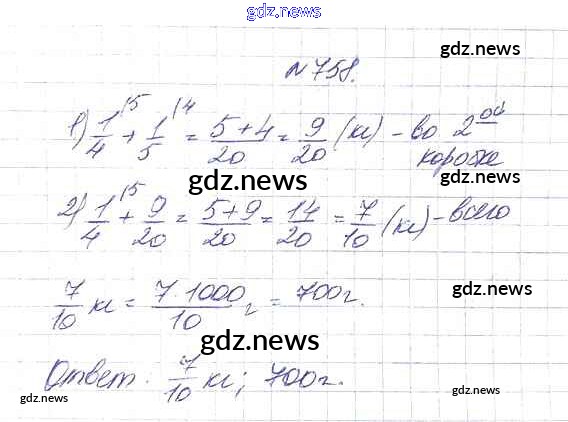 gdz.news
gdz.news
№ 758.
1) 1/4 + 1/5 = (5+4)/20 = 9/20 (кг) - во 2ой
коробке
gdz.news
gdz.news
2) 1/4 + 9/20 = (5+9)/20 = 14/20 = 7/10 (кг) - всего
gdz.news
7/10 кг = (7·1000)/10 г = 700г.
gdz.news
gdz.news
Ответ: 7/10 кг; 700г.
gdz.news
gdz.news